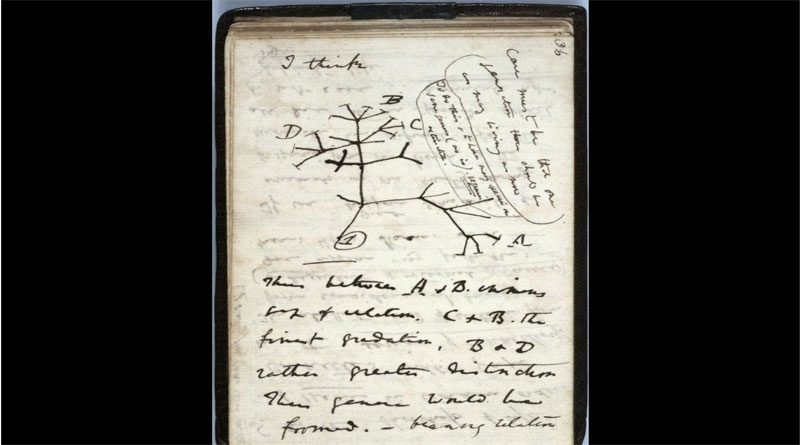 I think
36
Case must be that one
generation then should be
as many living as now
To do this & to have many species in
same genus (as is) requires
extinction.
B
C
D
1
A
Thus between A & B. immense
gap of relation. C & B. the
finest gradation, B & D
rather greater distinction
Thus genera would be
formed. — bearing relation